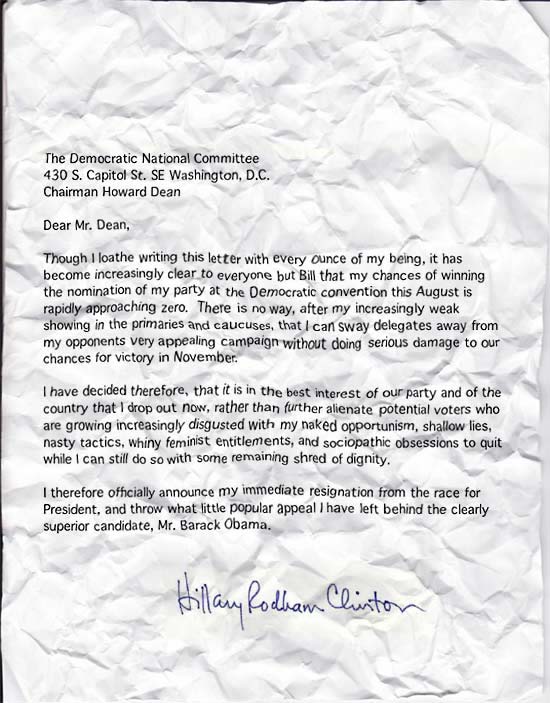 The Democratic National Committee
430 S. Capitol St. SE Washington, D.C.
Chairman Howard Dean
Dear Mr. Dean,
Though I loathe writing this letter with every ounce of my being, it has
become increasingly clear to everyone but Bill that my chances of winning
the nomination of my party at the Democratic convention this August is
rapidly approaching zero. There is no way, after my increasingly weak
showing in the primaries and caucuses, that I can sway delegates away from
my opponents very appealing campaign without doing serious damage to our
chances for victory in November.
I have decided therefore, that it is in the best interest of our party and of the
country that I drop out now, rather than further alienate potential voters who
are growing increasingly disgusted with my naked opportunism, shallow lies,
nasty tactics, whiny feminist entitlements, and sociopathic obsessions to quit
while I can still do so with some remaining shred of dignity.
I therefore officially announce my immediate resignation from the race for
President, and throw what little popular appeal I have left behind the clearly
superior candidate, Mr. Barack Obama.
Hillary Rodham Clinton